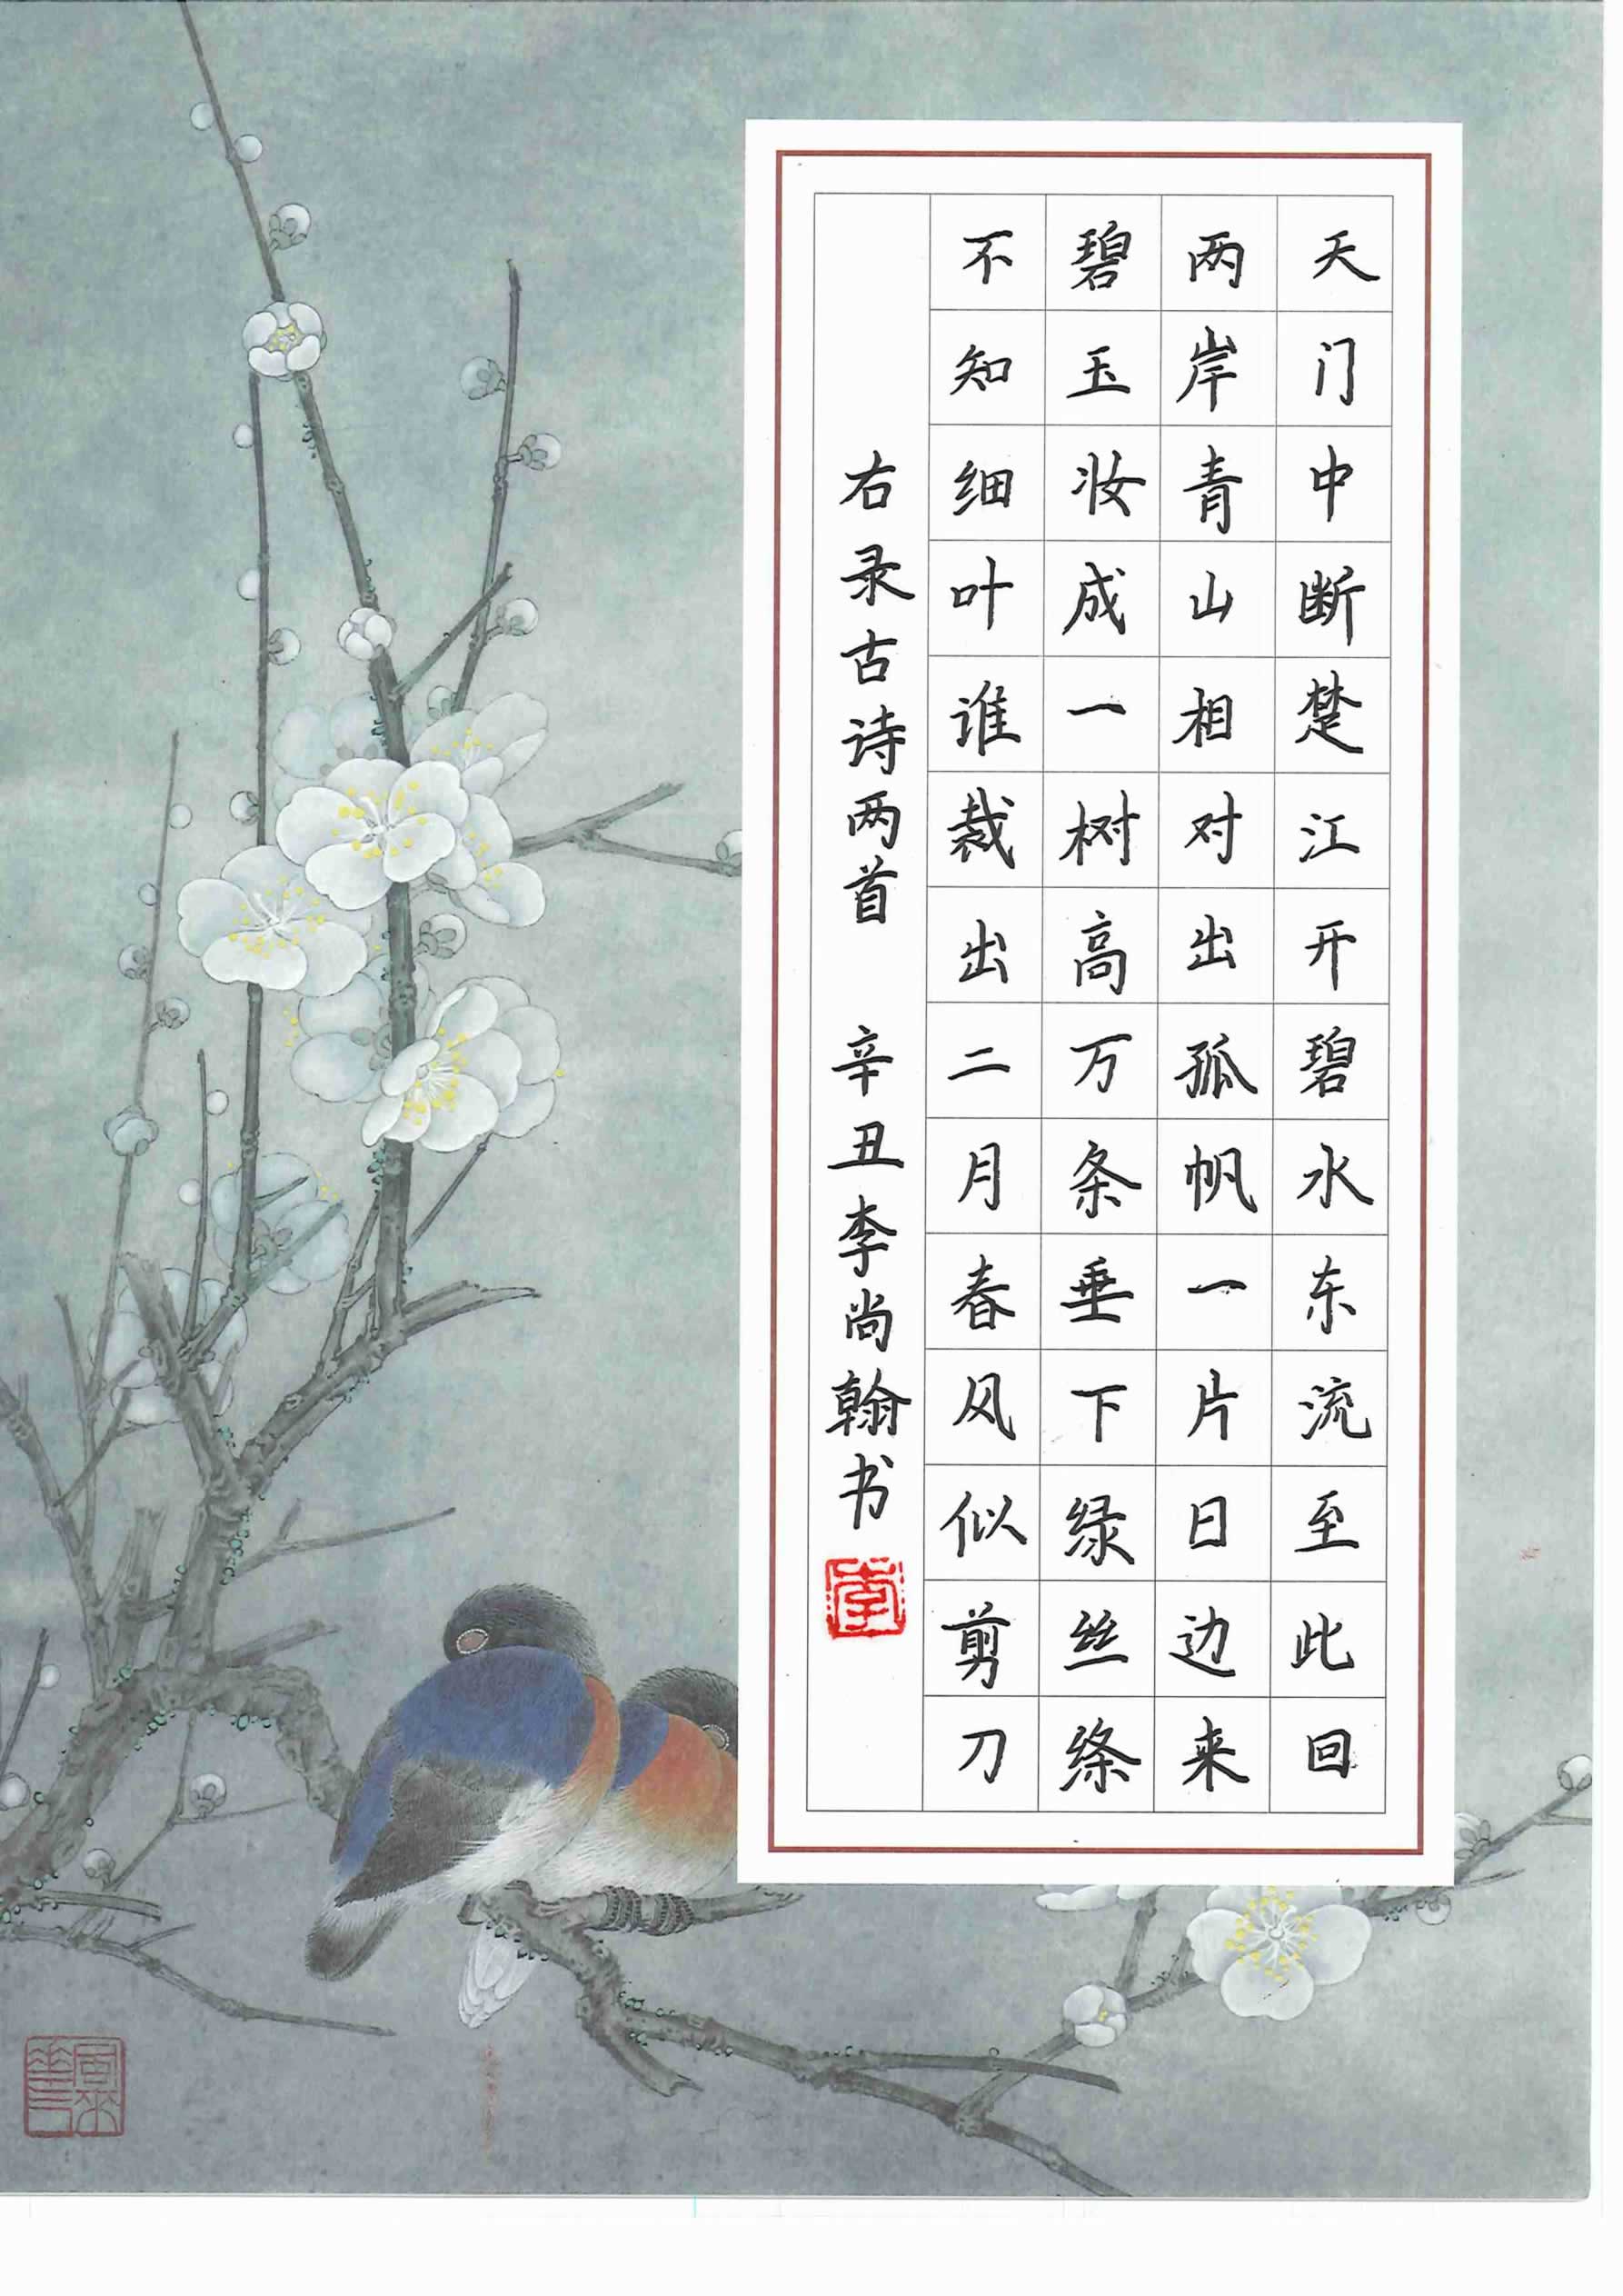 天门中断楚江开碧水东流至此回
两岸青山相对出孤帆一片日边来
碧玉妆成一树高万条垂下绿丝绦
不知细叶谁裁出二月春风似剪刀
右录古诗两首 辛丑李尚翰书
李